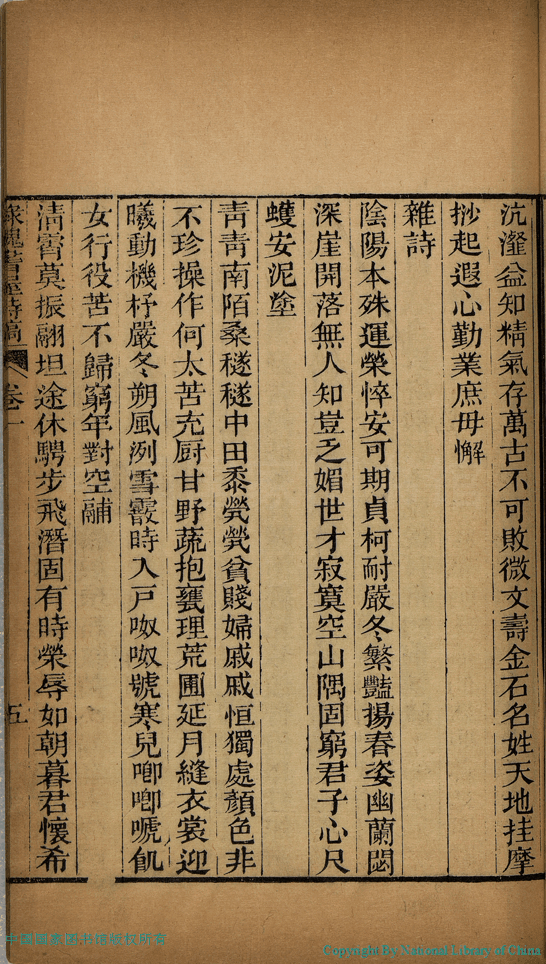 沆瀣益知精氣存萬古不可敗微文壽金石名姓天地挂摩
挱起遐心勤業庶毋懈
雜詩
陰陽本殊運榮悴安可期貞柯耐嚴冬繁豔揚春姿幽蘭閟
深崖開落無人知豈乏媚世才寂寞空山隅固窮君子心尺
蠖安泥塗
靑靑南陌桑穟穟中田黍煢煢貧賤婦戚戚恒獨處顏色非
不珍操作何太苦充厨甘野蔬抱甕理荒圃延月縫衣裳迎
曦動機杼嚴冬朔風洌雪霰時入戸呶呶號寒兒喞喞嗁飢
女行役苦不歸窮年對空䥷
清霄莫振翮坦途休騁步飛潛固有時榮辱如朝暮君懷希
卷一
五
中國國家圖書館版權所有
Copyright By National Library of China